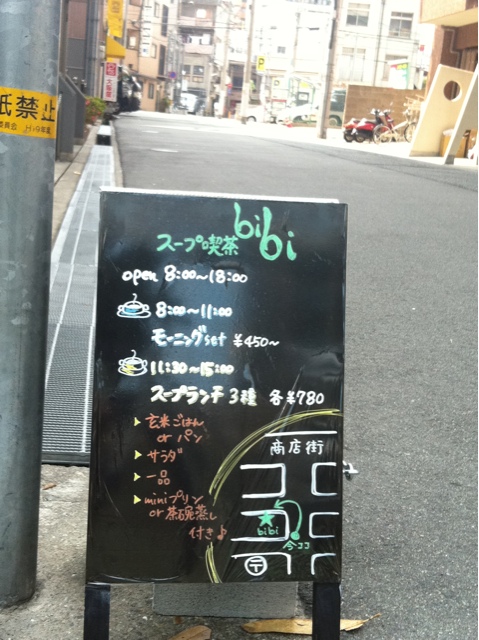 紙禁止
bibi
スープ喫茶
open 8:00~18:00
8:00~11:00
モーニングset ¥450~
11:30~15:00
スープランチ 3種 各¥780
玄米ごはん
or パン
サラダ
一品
miniプリン
or 茶碗蒸し
付き♪
商店街
bibi
今ココ
〒